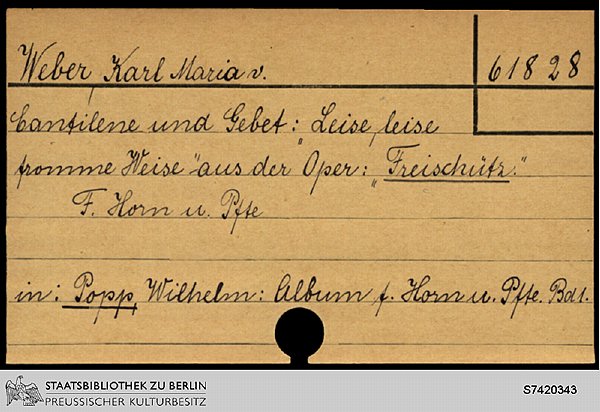 Weber, Karl Maria v.
61828
Cantilene und Gebet: „Leise, leise
fromme Weise" aus der Oper: „Freischütz."
F. Horn u. Pfte
in: Popp, Wilhelm: Album f. Horn u. Pfte. Bd 1.
STAATSBIBLIOTHEK ZU BERLIN
PREUSSISCHER KULTURBESITZ
S7420343